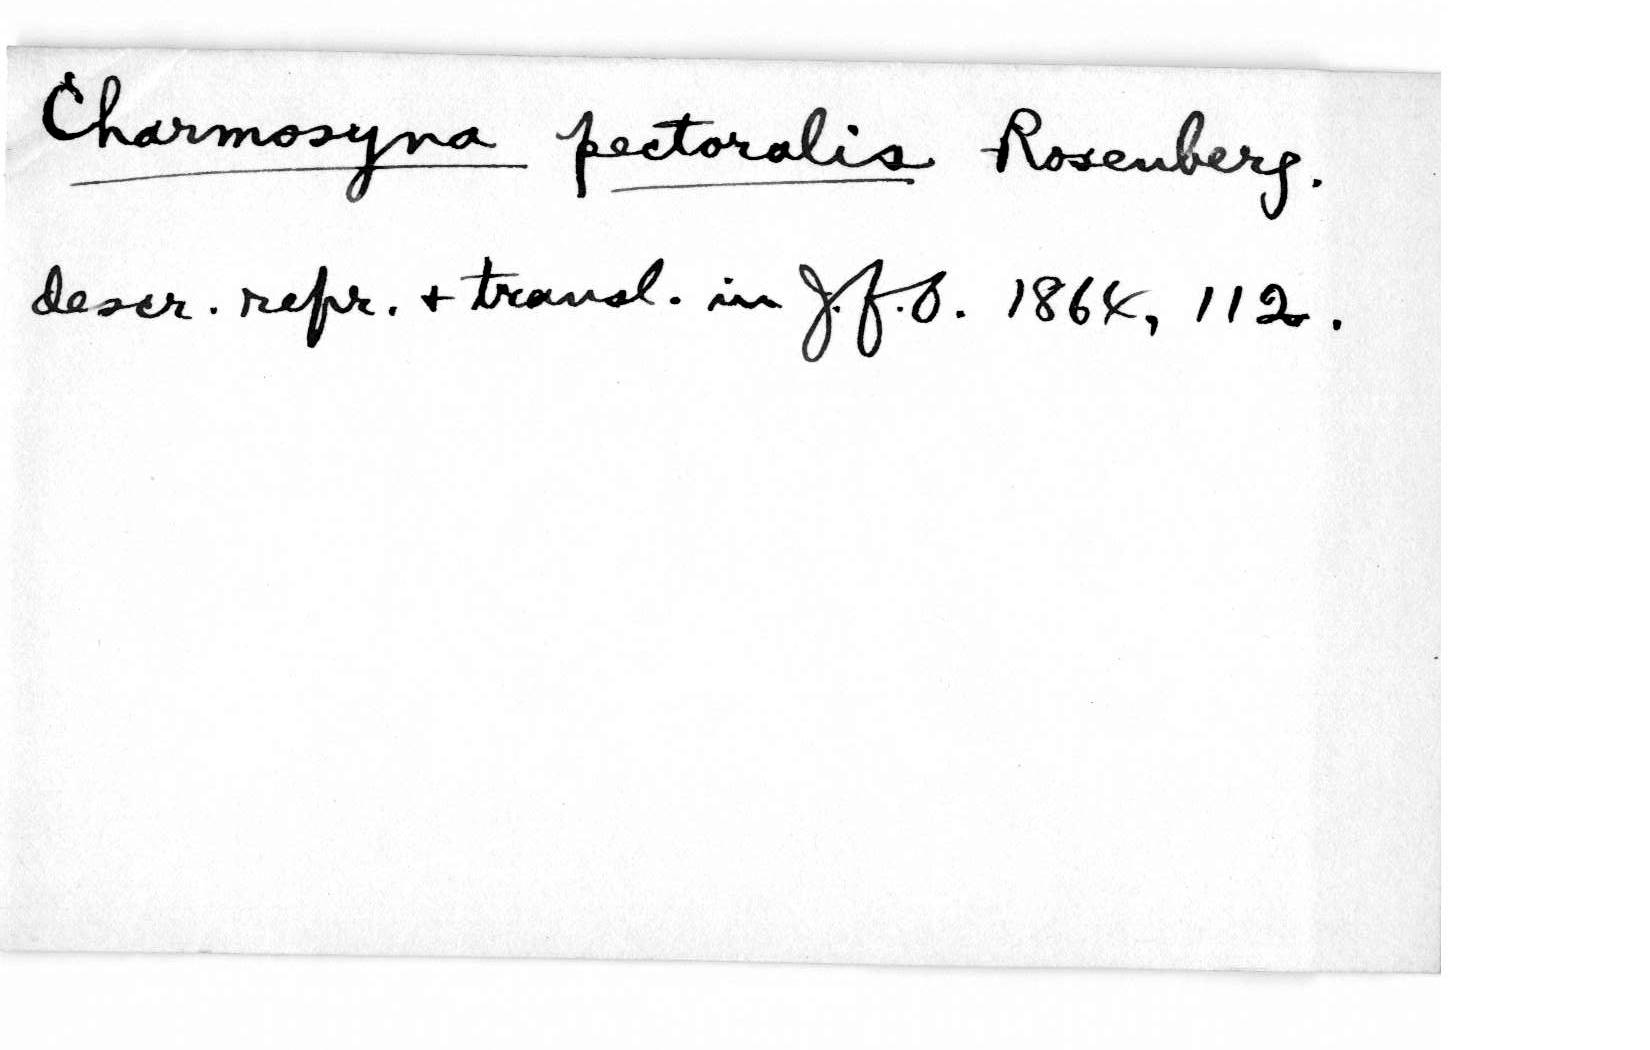 Charmosyna pectoralis Rosenberg.
descr. repr. + transl. in J.f.O. 1864, 112.